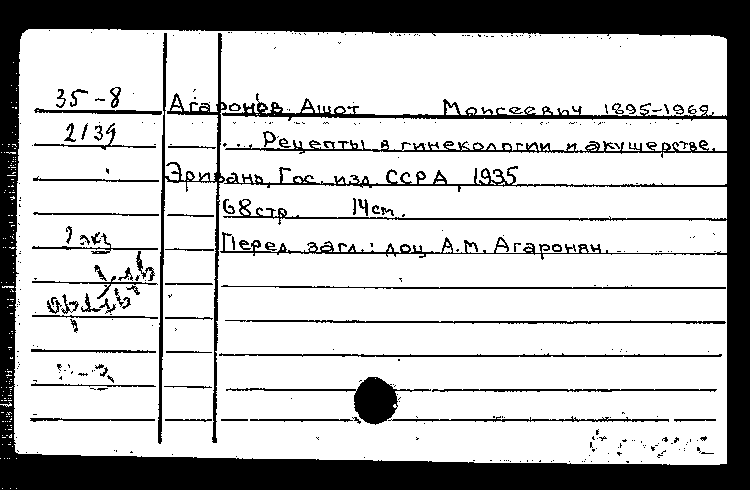 35-8 Агаронов, Ашот Моисеевич 1895-1969.
2139 ... Рецепты в гинекологии и акушерстве.
Эривань, Гос. изд. ССРА, 1935
68 стр. 14 cm.
2 экз Перед загл.: доц А.М. Агаронян.